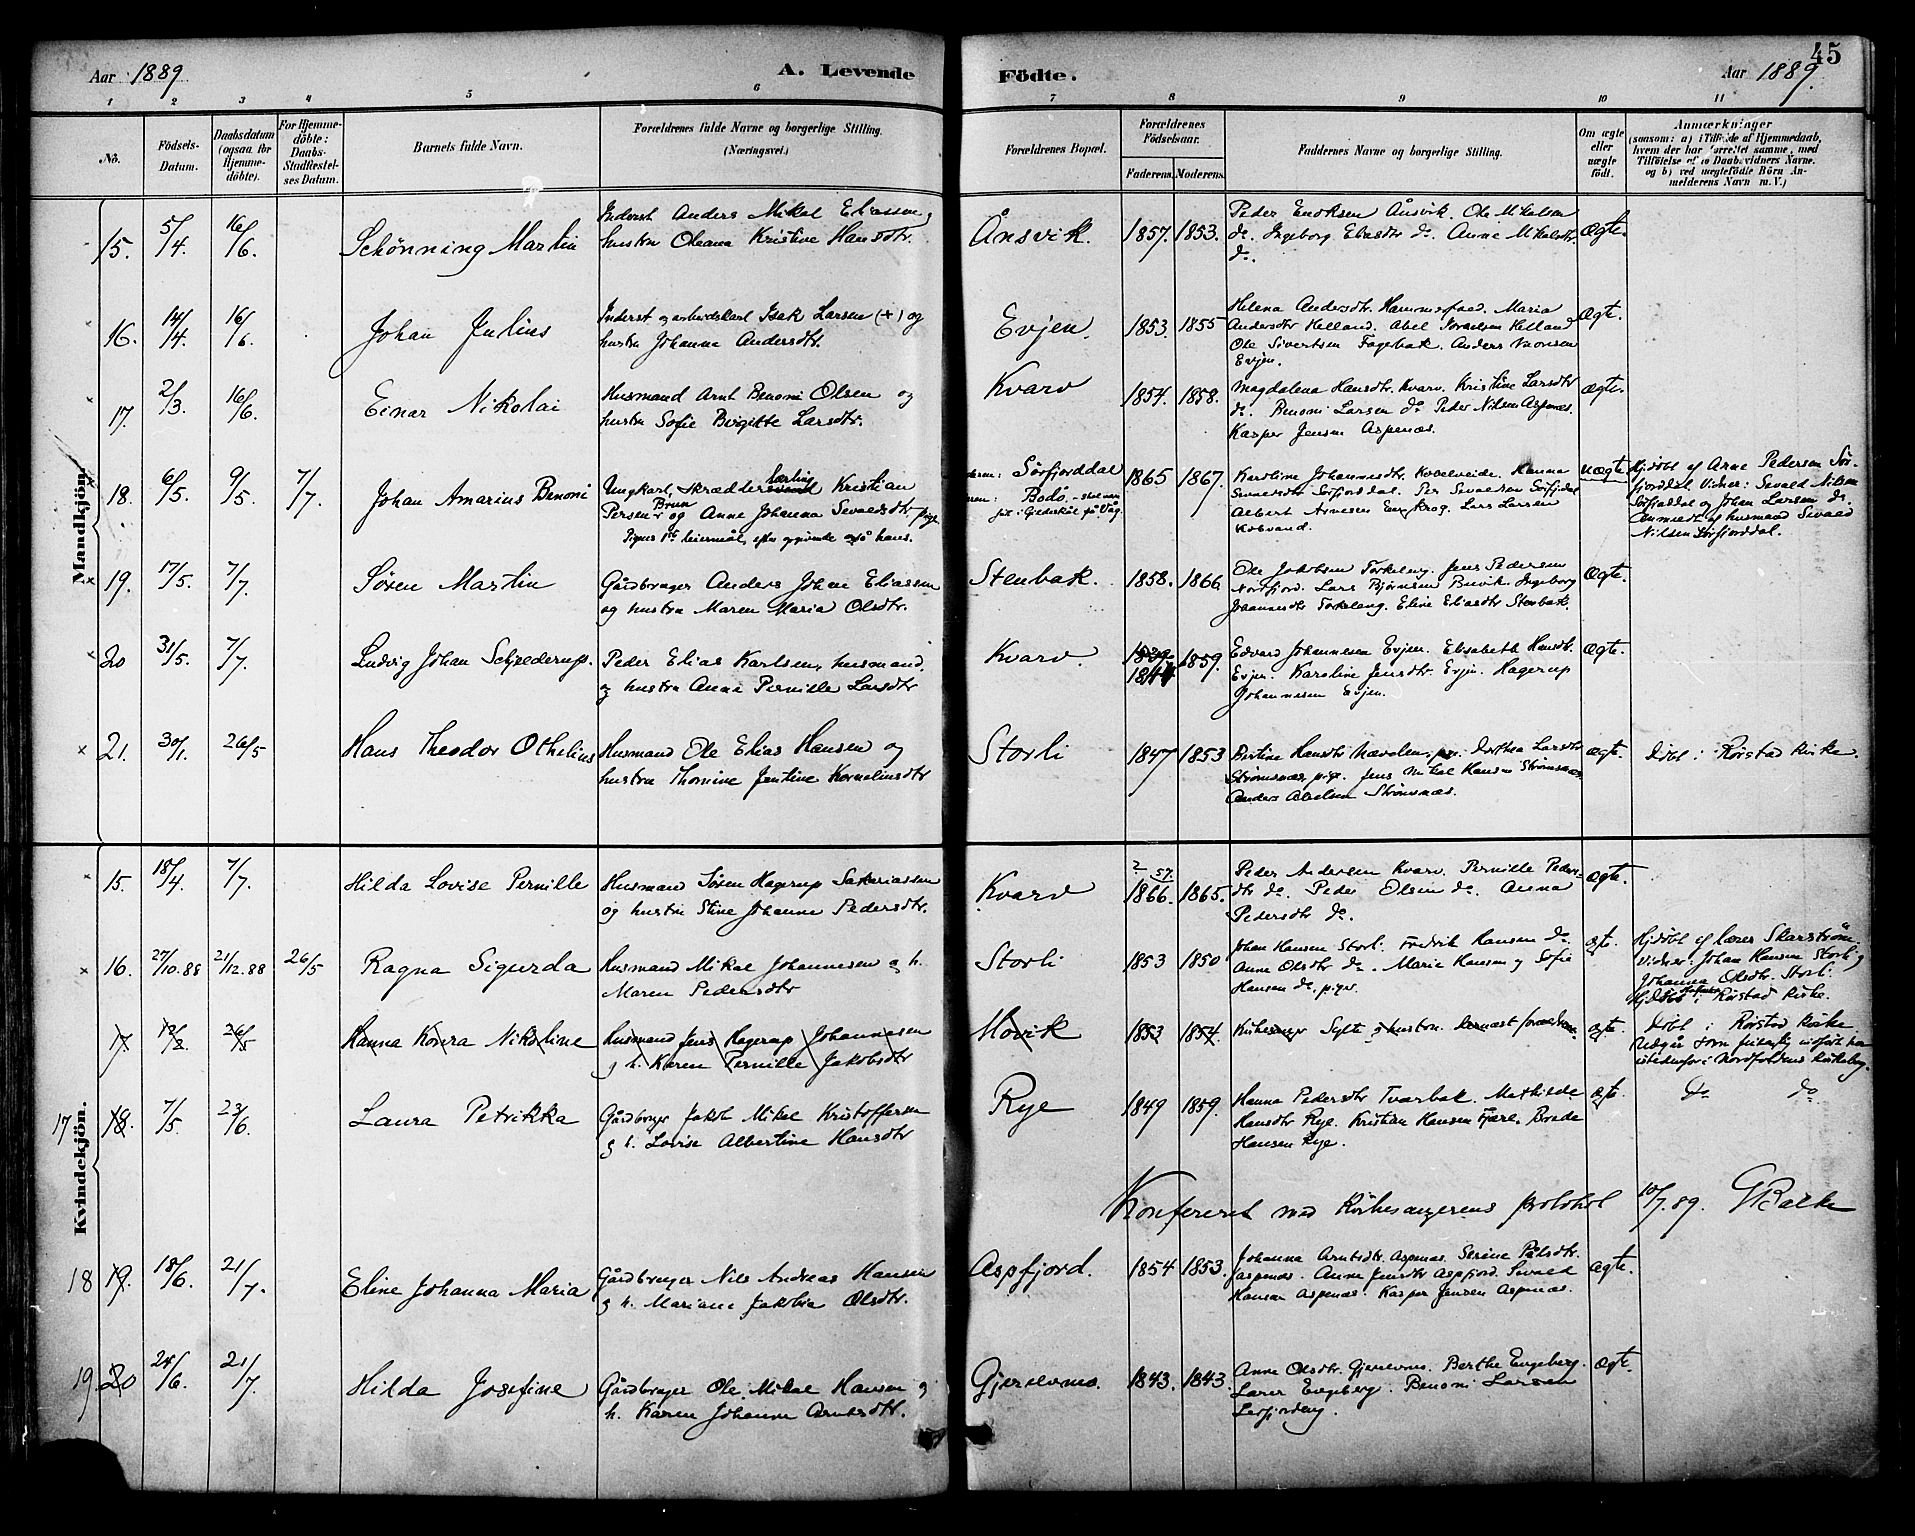 45
Aar 1889
A. Levende Födte.
Aar 1889.
1 2 3 4 5 6 7 8 9 10 11
No.
Födsels-Datum.
Daabsdatum (ogsaa for Hjemme-döbte).
For Hjemme-döbte: Daabs-Stadfestel-ses Datum.
Barnets fulde Navn.
Forældrenes fulde Navne og borgerlige Stilling.
(Næringsvei.)
Forældrenes Bopæl.
Forældrenes Fødselsaar.
Faderens. Moderens.
Faddernes Navne og borgerlige Stilling.
Om ægte eller uægte födt.
Anmærkninger
(saasom: a) i Tilfælde af Hjemmedaab,
hvem der har forrettet samme, med
Tilföielse af to Daabsvidners Navne.
og b) ved uægtefödte Börn An-
melderens Navn m. V.)
Mandkjön.
15. 5/4. 16/6. Schönning Martin
Inderst Anders Mikal Eliassen og
hustru Oleana Kristine Hansdtr.
Ånsvik. 1857. 1853.
Peder Enoksen Ånsvik. Ole Mikalsen
do. Ingeborg Eliasdtr do. Anne Mikalsdtr.
do.
Ægte.
16. 14/4. 16/6. Johan Julius
Inderst og arbeidskarl Isak Larsen (+) og
hustru Johanna Andersdtr.
Evjen. 1853. 1855
Helena Andersdtr. Maria
Andersdtr Helland. Abel Helland
Ole Sivertsen Fagerbak. Anders
Evjen.
Ægte.
17. 2/3. 16/6. Einar Nikolai
Husmand Arnt Benoni Olsen og
hustru Sofie Birgitte Larsdtr.
Kvarv 1854. 1858.
Magdalena Hansdtr. Kvarv. Kristine Larsdtr
do. Benoni Larsen do Peder Nilsen Aspenæs.
Kasper Jensen Aspenæs.
ægte.
18. 6/5. 9/5. 7/7. Johan Amarius Benoni
Ungkarl, Skrædderlærling Kristian
Persen Brun og Anne Johanna Sevaldsdtr, pige
Pigens 1ste leiermål, efter opgivende også hans.
Sörfjorddal
Bodö.
1865 1867.
Karoline Johannesdtr. Kobelveide. Hanna
Sevaldsdtr Sörfjorddal. Per Sevaldsen
Albert Arnesen Engkrog. Lars Larsen
Kobvand.
uægte
Hjdöbt af Arne Pedersen Sör-
fjorddal Vidner: Sevald Nilsen
Sörfjorddal og Johan Larsen do.
Anmeldt af husmand Sevald
Nilsen Sörfjorddal.
19. 17/5. 7/7. Sören Martin
Gårdbruger Anders Johan Eliassen
og hustru Maren Maria Olsdtr.
Stenbak. 1858. 1866
Ole Jakobsen Torkeleng. Jens Pedersen
Nordfjord. Lars Bjørnsen Buvik. Ingeborg
Johannesdtr Torkeleng. Eline Eliasdtr Stenbak.
Ægte.
20 31/5. 7/7. Ludvig Johan Schjelderup.
Peder Elias Karlsen, husmand,
og hustru Anne Pernille Larsdtr
Kvarv. 1839. 1844 1859.
Edvard Johannesen Evjen. Elisabeth Hansdtr.
Evjen. Karoline Jensdtr. Evjen. Hagerup
Johannesen Evjen.
Ægte.
21. 30/1. 26/5 Hans Theodor Othelius
Husmand Ole Elias Hansen og
hustru Thomine Jentine Kornelinsdtr
Storli 1847 1853
Hansdtr Dorthea Larsdtr
Strömsnæs, pige. Jens Mikal Hansen Strömsnæs
Anders Abelsen Strömsnæs.
ægte.
Döbt i Rörstad Kirke.
Kvindekjön.
15. 18/4. 7/7. Hilda Lovise Pernille
Husmand Sören Hagerup Sakariassen
og hustru Stine Johanne Pedersdtr.
Kvarv 2 57. 1866. 1865.
Peder Andersen Kvarv. Pernille Peders-
dtr do. Peder Olsen do. Anna
Pedersdtr do.
ægte.
16. 27/10.88 21/12.88 26/5 Ragna Sigurda
Husmand Mikal Johannesen og h.
Maren Pedersdtr
Storli 1853 1850
Johan Hansen Storli. Fredrik Hansen do.
Anne Olsdtr do. Marie Hansen og Sofie
Hansen do, piger.
ægte.
Hjdöbt af lærer Skarström.
Vidner: Johan Hansen Storli og
Johanna Olsdtr. Storli.
i Rörstad Kirke.
17 13/2. 26/5 Hanna Konra Nikoline
Husmand Jens Hagerup Johannesen
og h. Karen Pernille Jakobsdtr
Movik 1853 1854
Kirkesanger Sylte og hustru. dernæst forældrene
ægte.
Döbt i Rörstad Kirke
Udgår som feilagtig indført her
istedenfor i Nordfoldens Kirkebog.
17 18. 7/5. 23/6. Laura Petrikka
Gårdbruger Jakob Mikal Kristoffersen
og h. Lovise Albertine Hansdtr
Rye 1849 1859.
Hanna Pedersdtr Tverbak. Mathilde
Hansdtr Rye. Kristian Hansen Fjære. Brede
Hansen Rye.
ægte.
Do do
Konfereret med Kirkesangerens protokol 10/7.89. G Balke
18 19. 18/6. 21/7. Eline Johanna Maria
Gårdbruger Nils Andreas Hansen
og h. Mariane Jakobia Olsdtr.
Aspfjord. 1854 1853.
Johanna Arntsdtr. Aspenæs. Serine Pålsdtr.
Aspenæs. Anne Jensdtr Aspfjord. Sevald
Hansen Aspenæs. Kasper Jensen Aspenæs.
ægte.
19. 20 24/6. 21/7. Hilda Josefine
Gårdbruger Ole Mikal Hansen og
h. Karen Johanne Arntsdtr.
Gjerelvmo. 1843. 1843.
Anne Olsdtr. Gjerelvmo. Berthe Engeberg.
Lærer Engeberg. Benoni Larsen
Leifjordeng.
Ægte.